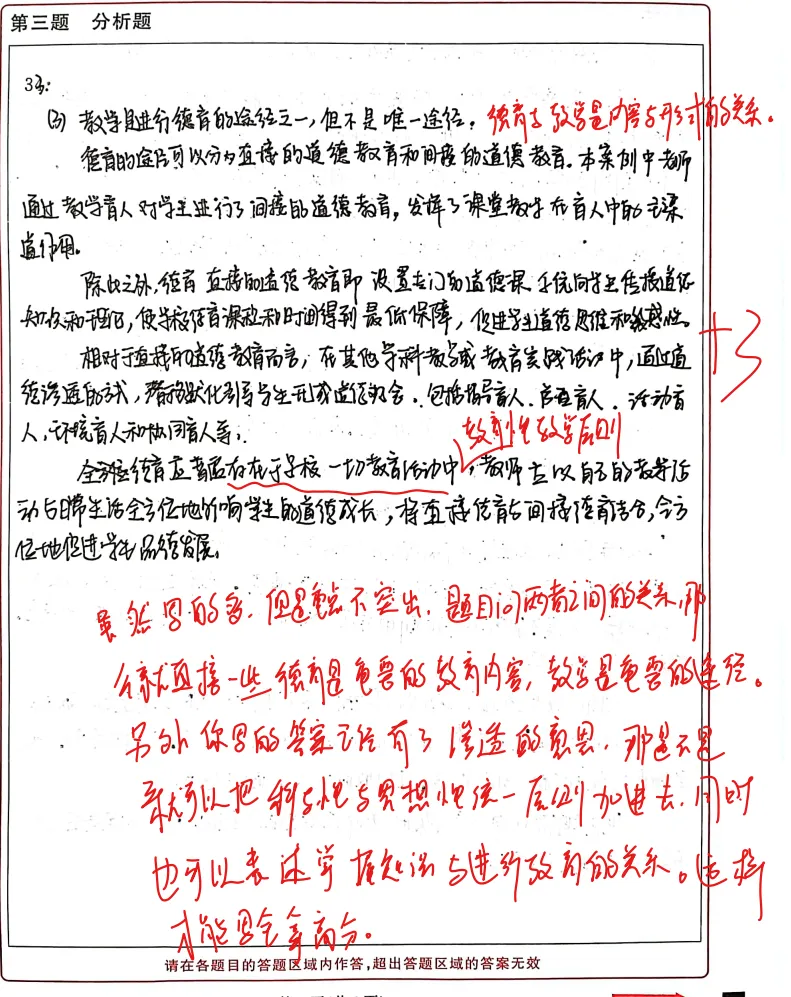 第三题 分析题
33:
(3) 教学是进行德育的途径之一,但不是唯一途径。德育与教学是内容与形式的关系。
德育的途径可以分为直接的道德教育和间接的道德教育。本案例中老师
通过教学育人对学生进行了间接的道德教育,发挥了课堂教学在育人中的主渠
道作用。
除此之外,德育 直接的道德教育即设置专门的道德课 系统向学生传授道德
知识和理论,使学校德育课程和时间得到最低保障,促进学生道德思维和敏感性。
相对于直接的道德教育而言,在其他学科教学或教育实践活动中,通过道
德渗透的方式,潜移默化引导学生形成道德机会。包括指导育人、管理育人、活动育
人,环境育人和协同育人等;
教育性教学原则
学校德育应当存在于学校一切教育活动中,教师应以自己的教学活
动与日常生活全方位地影响学生的道德成长,将直接德育与间接德育结合,全方
位地促进学生品德发展。
+3
虽然写的多,但是重点不突出,题目问两者之间的关系,那
么就直接一些德育是重要的教育内容,教学是重要的途径。
另外你写的答案已经有了渗透的意思,那是不是
就可以把科学性与思想性统一原则加进去,同时
也可以表述掌握知识与进行教育的关系。这样
才能写全拿高分。
请在各题目的答题区域内作答,超出答题区域的答案无效